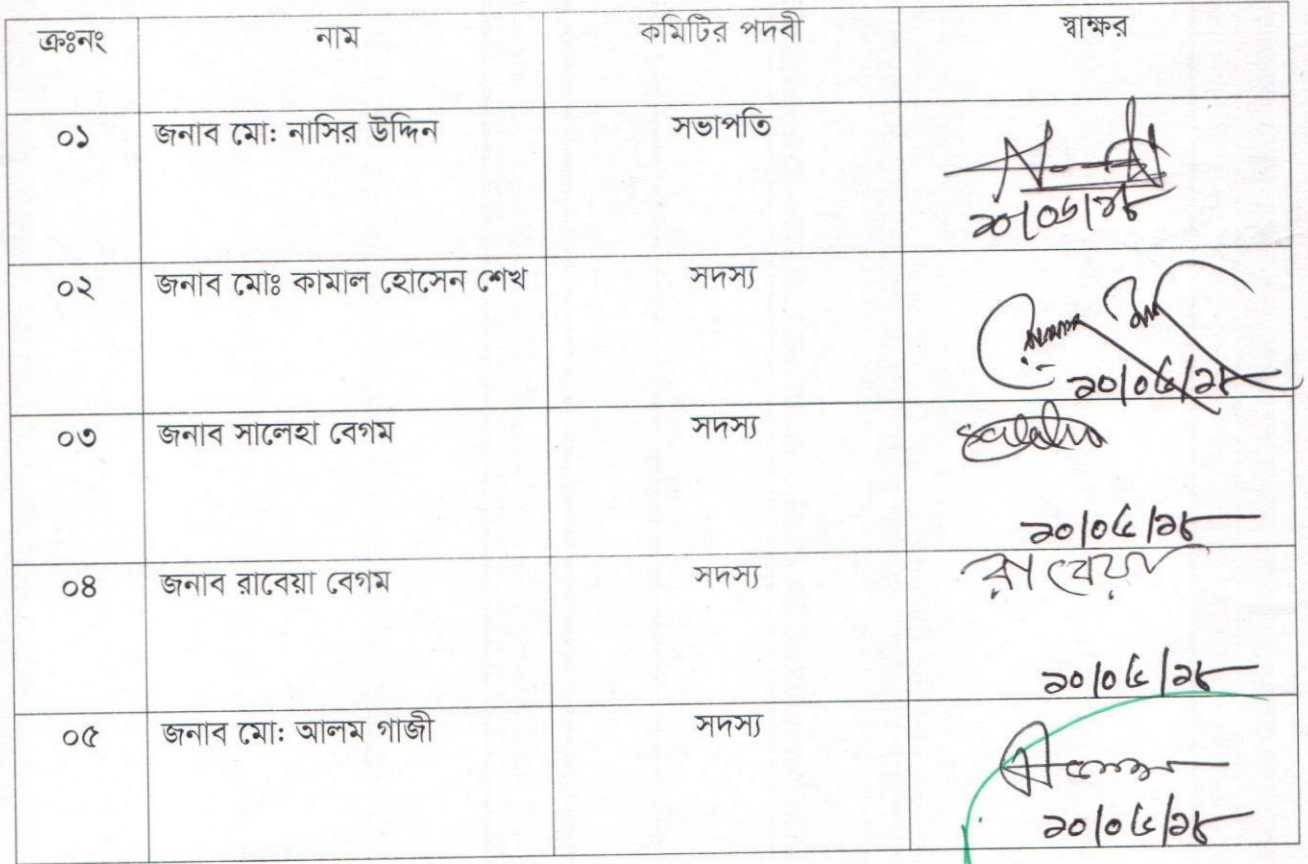 ক্রঃনং নাম কমিটির পদবী স্বাক্ষর
০১ জনাব মো: নাসির উদ্দিন সভাপতি
০২ জনাব মোঃ কামাল হোসেন শেখ সদস্য
০৩ জনাব সালেহা বেগম সদস্য
২০/০৫/২৮
০৪ জনাব রাবেয়া বেগম সদস্য রাবেয়া
২০/০৫/২৮
০৫ জনাব মো: আলম গাজী সদস্য
২০/০৫/২৮